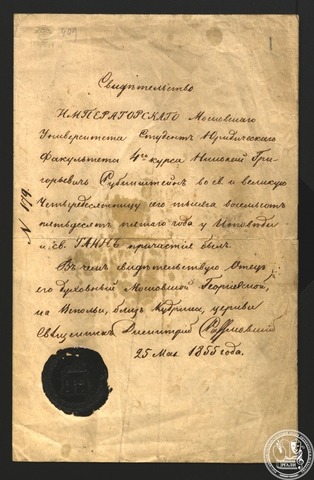 409
1
Свидѣтельство
ИМПЕРАТОРСКАГО Московскаго
Университета Студентъ Юридическаго
Факультета 4го курса Николай Гри-
горьевичъ Рубинштейнъ во св. и великую
Четыредесятницу сего тысяча восемьсотъ
пятьдесятъ пятаго года у Исповѣди
и св. ТАИНЪ причастія былъ.
Въ чемъ свидѣтельствую Отецъ
его духовный Московской Георгіевской,
на Всполье, близъ Кудрина, церкви
Священникъ Димитрій
25 Мая 1855 года.
N 179.
РГАЛИ